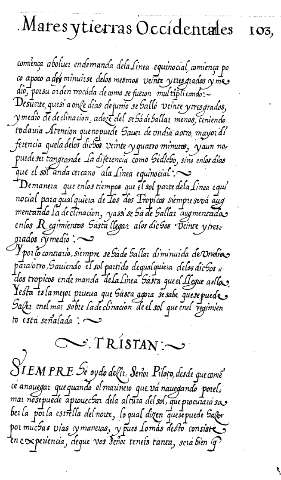 Mares y tierras Occidentales 103,
comiença a bolver en demanda dela Linea equinocial, comiença po
co a poco a diminuirse delos mesmos veinte y tres grados y me
dio, por su orden trocada de como se fueron multiplicando:
Desuerte, que si a onze dias de junio se hallo veinte y tres grados,
y medio de declinacion, a doze del se ha de hallar menos, teniendo
todavia Atencion que no puede haver de un dia a otro, mayor di
ferencia que la delos dichos veinte y quatro minutos, y aun no
puede ser tan grande La diferencia como he dicho, sino en los dias
que el sol anda cercano ala Linea equinocial:
Demanera que en los tiempos que el sol parte dela Linea equi
nocial para qualquiera de Los dos Tropicos siempre se va au
mentando la declinacion, y assi se ha de hallar augmentada
en los Regimientos hasta llegar alos dichos veinte y tres
grados y medio:
Y por lo contrario, siempre se ha de hallar diminuida de un dia
para otro, haviendo el sol partido de qualquiera delos dichos
dos tropicos en demanda dela Linea hasta que el llegue a ella
Y esta es la mejor prueva que hasta agora se sabe que se puede
hazer en el mar sobre la declinacion de el sol que en el regimien
to esta señalado:
TRISTAN:
SIEMPRE He oydo dezir Señor Piloto, desde que comen
ce a navegar que quando el marinero que va navegando por el
mar no se puede aprovechar dela altura del sol, que procura sa
ber la por la estrella del norte, lo qual dizen que se puede hazer
por muchas vias y maneras, y pues Lo mas desto consiste
en experiencia, de que vos Señor teneis tanta, será bien q